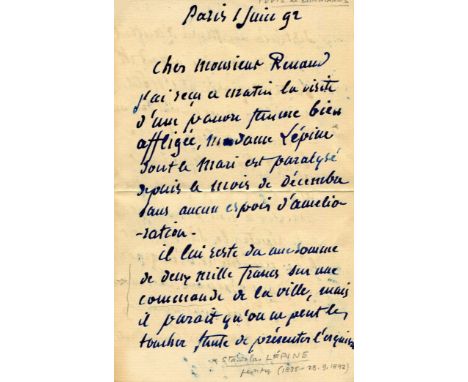 Paris 1 Juin 92
Cher Monsieur Renaud
J'ai reçu ce matin la visite
d'une pauvre femme bien
affligée, madame Lépine
dont le Mari est paralysé
depuis le mois de décembre
sans aucun espoir d'amélio
-ration.
il lui reste du une somme
de deux mille francs sur une
commande de la ville, mais
il parait qu'on ne peut les
toucher, faute de présenter l'esquisse
Stanislas LÉPINE
peintre (1835-28.9.1892)